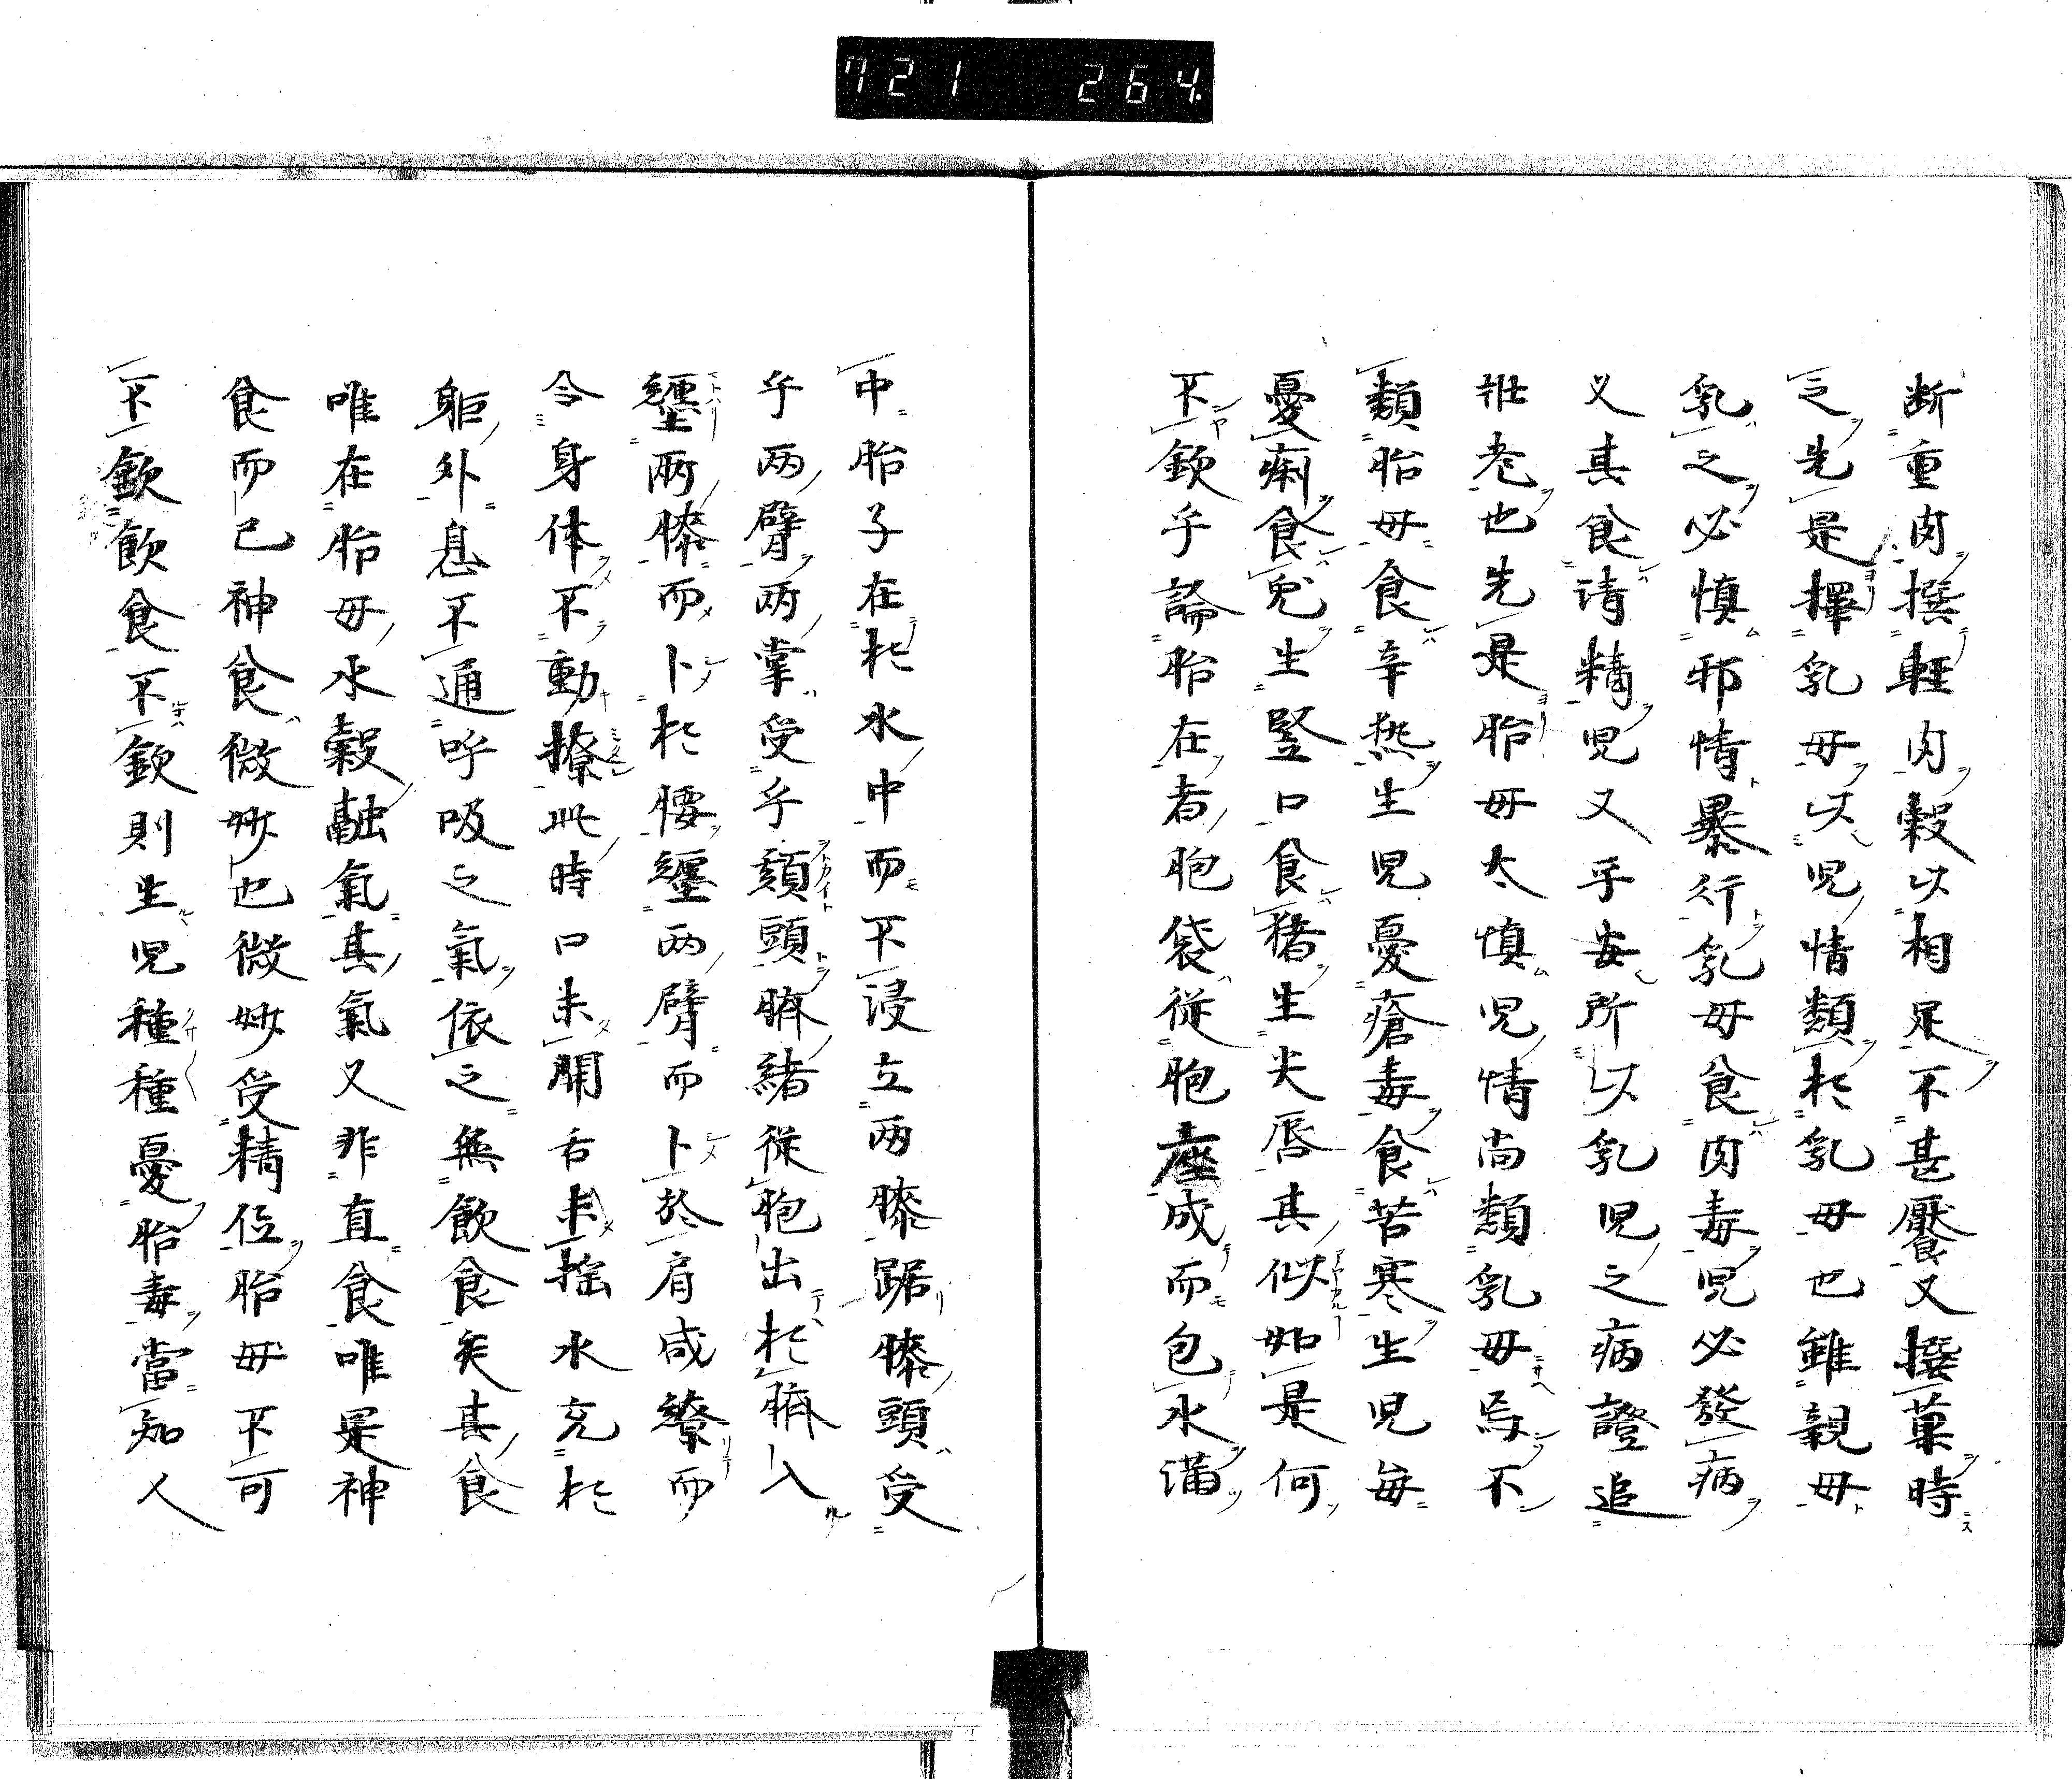 721 264
断重肉撰軽肉穀以相足不甚饜又撰菓時
之先是擇乳母以児情類於乳母也雖親母
乳之必慎邪情暴行乳母食肉毒児必發病
又其食清精児又乎安所以乳児之病證追
壮老也先是胎母太慎児情尚類乳母焉不
類胎母食辛熱生児憂瘡毒食苦寒生児毎
憂痢食兎生竪口食猪生尖唇其似如是何
不欽乎論胎在者胞袋従胞座成而包水満
中胎子在於水中而不浸立両膝踞膝頭受
乎両臂両掌受乎頬頭臍緒従胞出於臍入
纏両膝而卜於腰纏両臂而卜於肩咸繚而
令身体不動撩此時口未開舌未揺水充於
躯外息不通呼吸之氣依之無飲食矣其食
唯在胎母水穀融氣其氣又非直食唯是神
食而已神食微妙也微妙受精位胎母不可
不欽飲食不欽則生児種種憂胎毒當知人